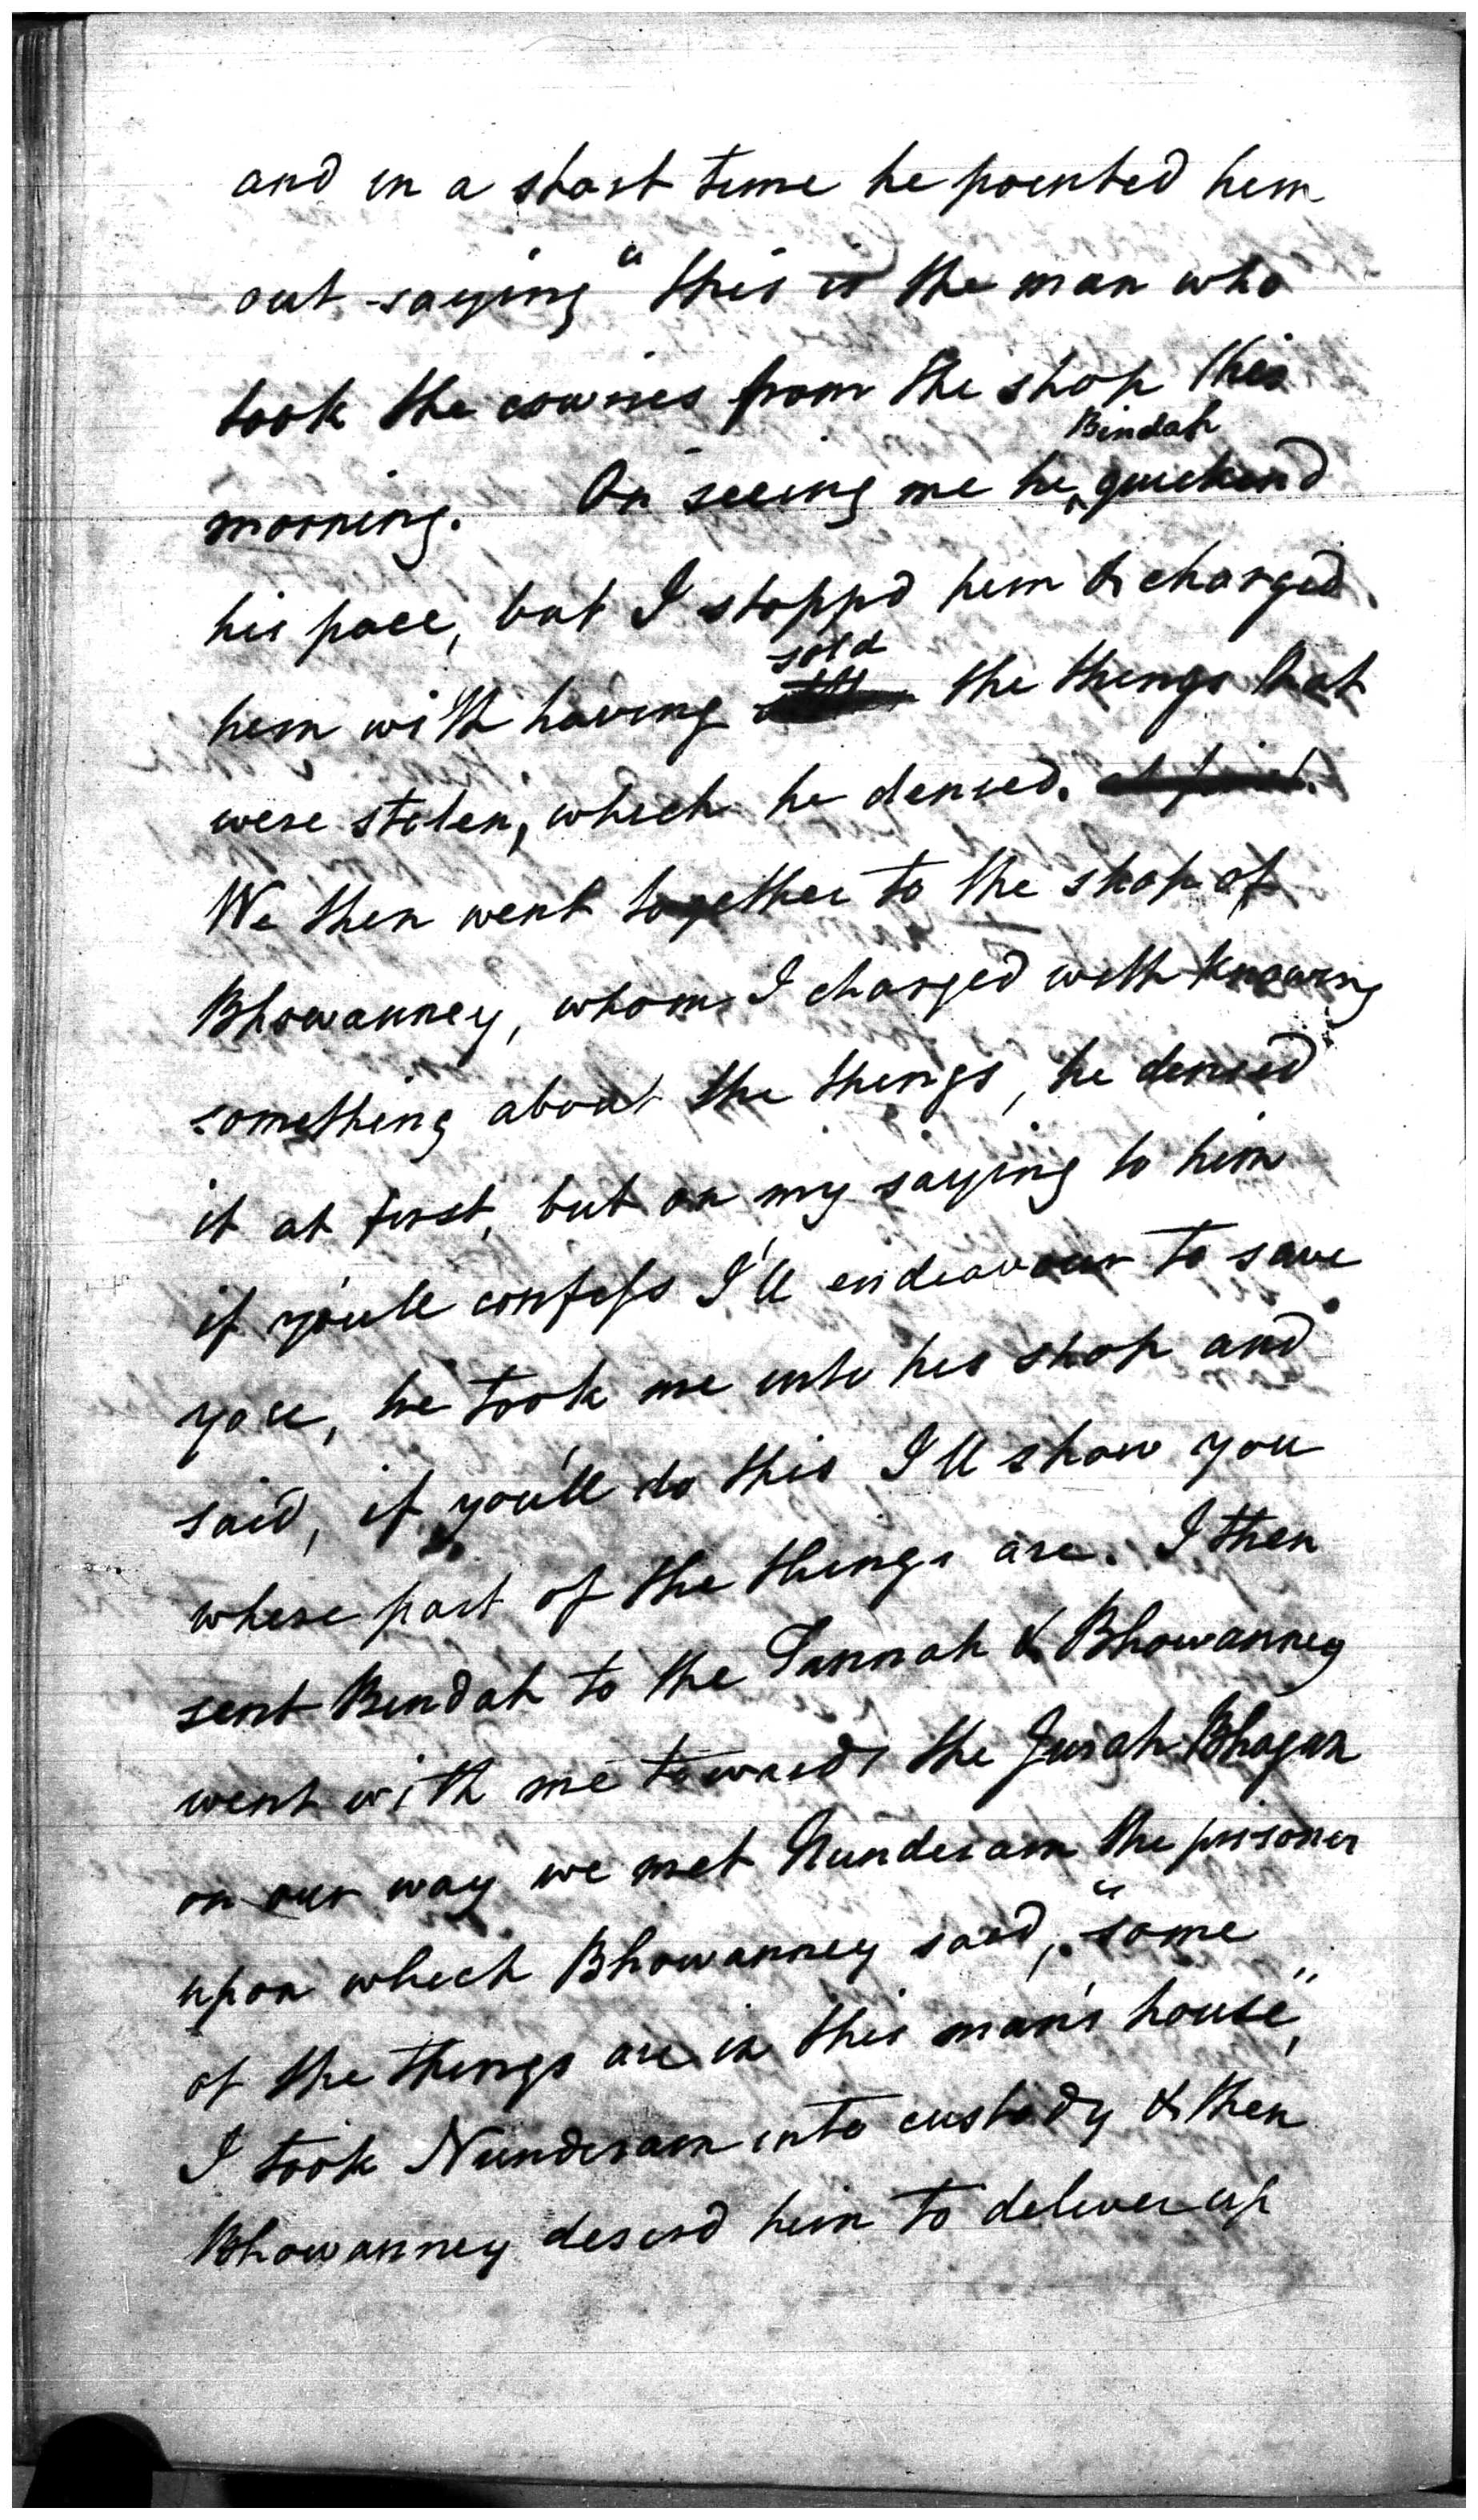 and in a short time he pointed him
out saying "this is the man who
took the cowries from the shop this
morning. On seeing me he Bindah quickend
his pace, but I stoppd him & charged
him with having sold the things that
were stolen, which he denied.
We then went together to the shop of
Bhowanney, whom I charged with knowing
something about the things, he denied
it at first, but on my saying to him
if you'll confess I'll endeavour to save
you, he took me into his shop and
said, if you'll do this I'll show you
where part of the things are. I then
sent Bindah to the Tannah & Bhowanney
went with me towards the Jurah Bhagan
on our way we met Nunderam the prisoner
upon which Bhowanney said, "some
of the things are in this man's house,"
I took Nunderam into custody & then
Bhowanney desird him to deliver up